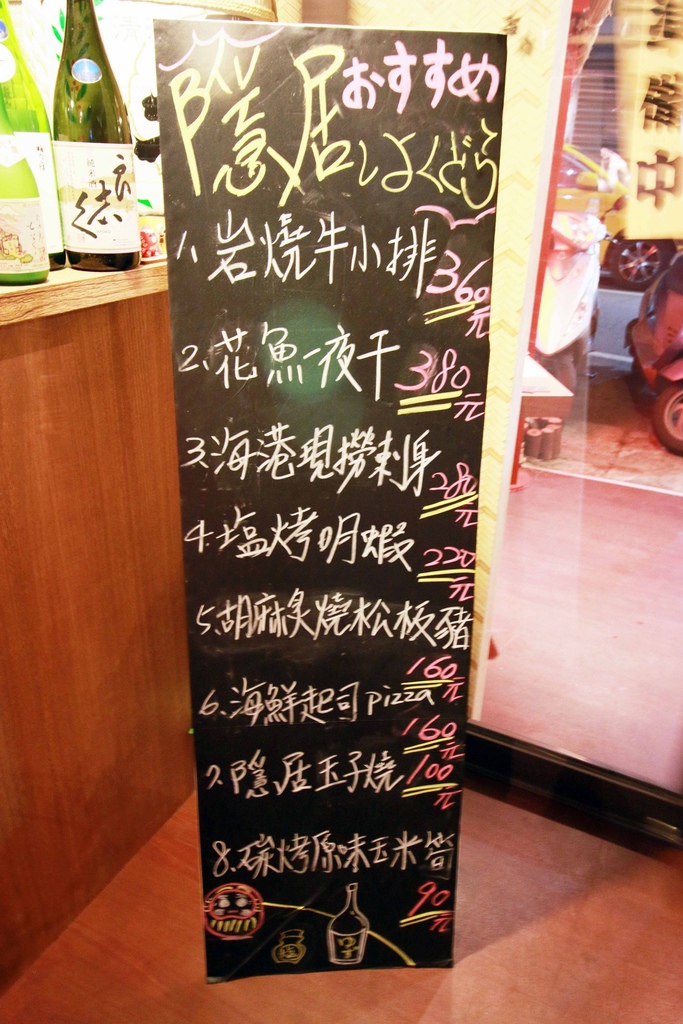 隱居 おすすめ
しょくどう
1. 岩燒牛小排 360元
2. 花魚一夜干 380元
3. 海港現撈刺身 280元
4. 塩烤明蝦 220元
5. 胡麻炙燒松板豬 160元
6. 海鮮起司pizza 160元
7. 隱居玉子燒 100元
8. 碳烤原味玉米筍 90元
ゆず
純米酒